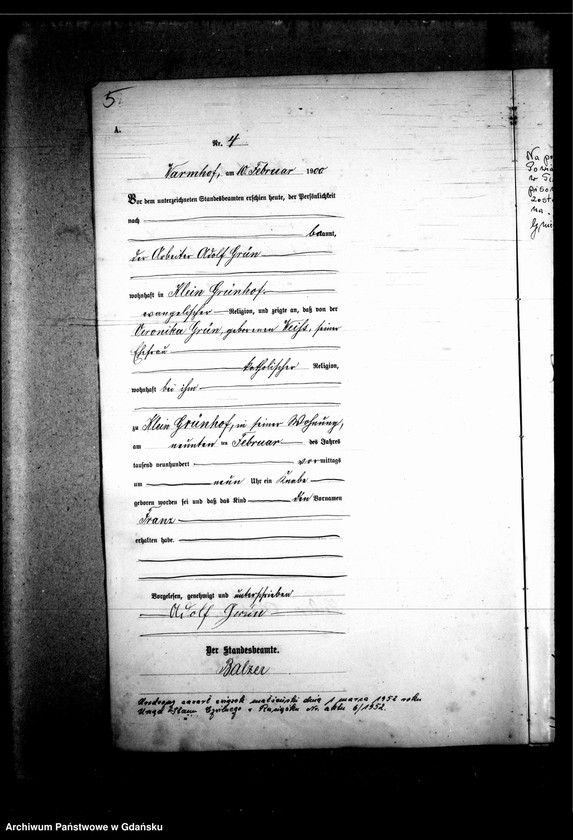 5.
A.
Nr. 4
Warmhof, am 10. Februar 1900
Vor dem unterzeichneten Standesbeamten erschien heute, der Persönlichkeit
nach
bekannt,
der Arbeiter Adolf Grün
wohnhaft in Klein Grünhof
evangelischer Religion, und zeigte an, daß von der
Veronika Grün, geborenen Weiss, seiner
Ehefrau
katholischer Religion,
wohnhaft bei ihm
zu Klein Grünhof, in seiner Wohnung,
am neunten ten Februar des Jahres
tausend neunhundert vormittags
um neun Uhr ein Knabe
geboren worden sei und daß das Kind den Vornamen
Franz
erhalten habe.
Vorgelesen, genehmigt und unterschrieben
Adolf Grün
Der Standesbeamte.
Balzer
zawarł związek małżeński dnia 1 marca 1952 roku
Urząd Stanu Cywilnego w Nr. aktu 6/1952.
Na
w
na
Archiwum Państwowe w Gdańsku